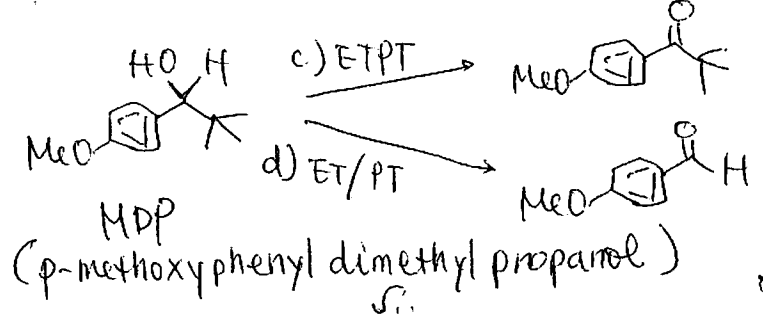 HO H
c.) ETPT
O
MeO
MeO
d) ET/PT
O
H
MeO
MDP
(p-methoxyphenyl dimethyl propanol)